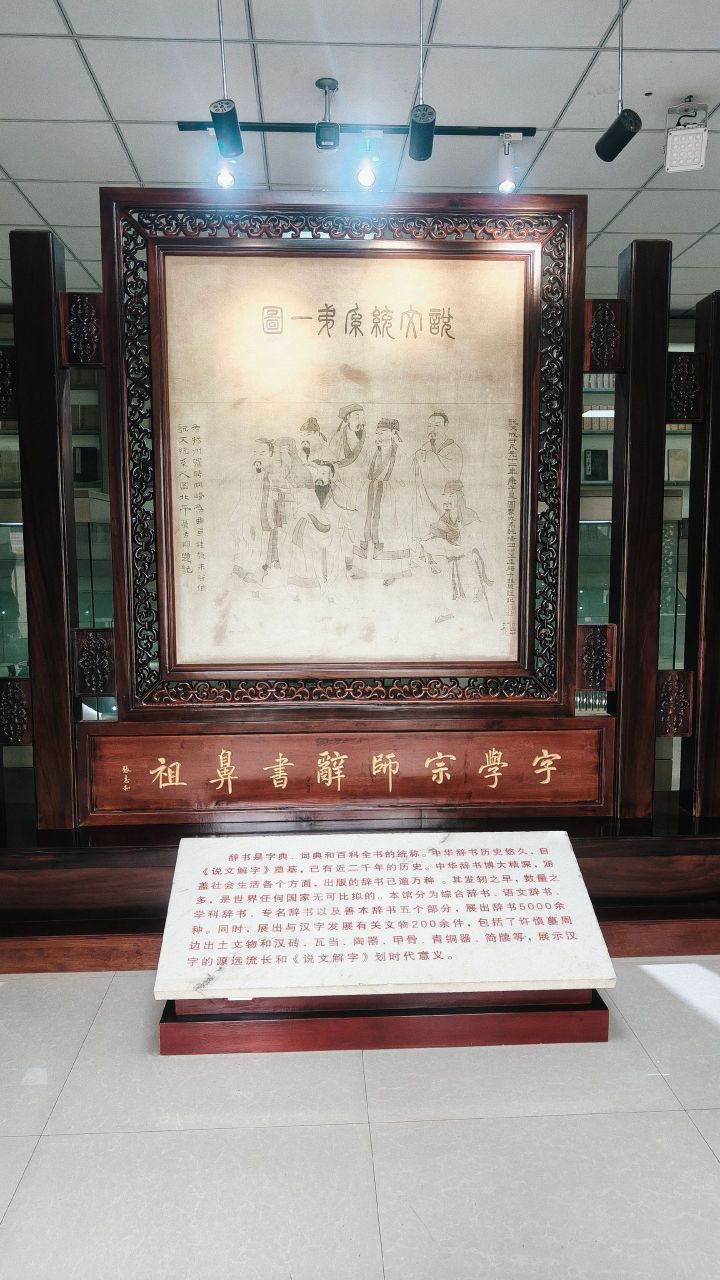 說文統系弟一圖
字學宗師辭書鼻祖
張志和
辞书是字典、词典和百科全书的统称。中华辞书历史悠久，自
《说文解字》奠基，已有近二千年的历史。中华辞书博大精深，涵
盖社会生活各个方面，出版的辞书已逾万种。其发轫之早，数量之
多，是世界任何国家无可比拟的。本馆分为综合辞书、语文辞书、
学科辞书、专名辞书以及善本辞书五个部分，展出辞书5000余
种。同时，展出与汉字发展有关文物200余件，包括了许慎墓周
边出土文物和汉砖、瓦当、陶器、甲骨、青铜器、简牍等，展示汉
字的源远流长和《说文解字》划时代意义。